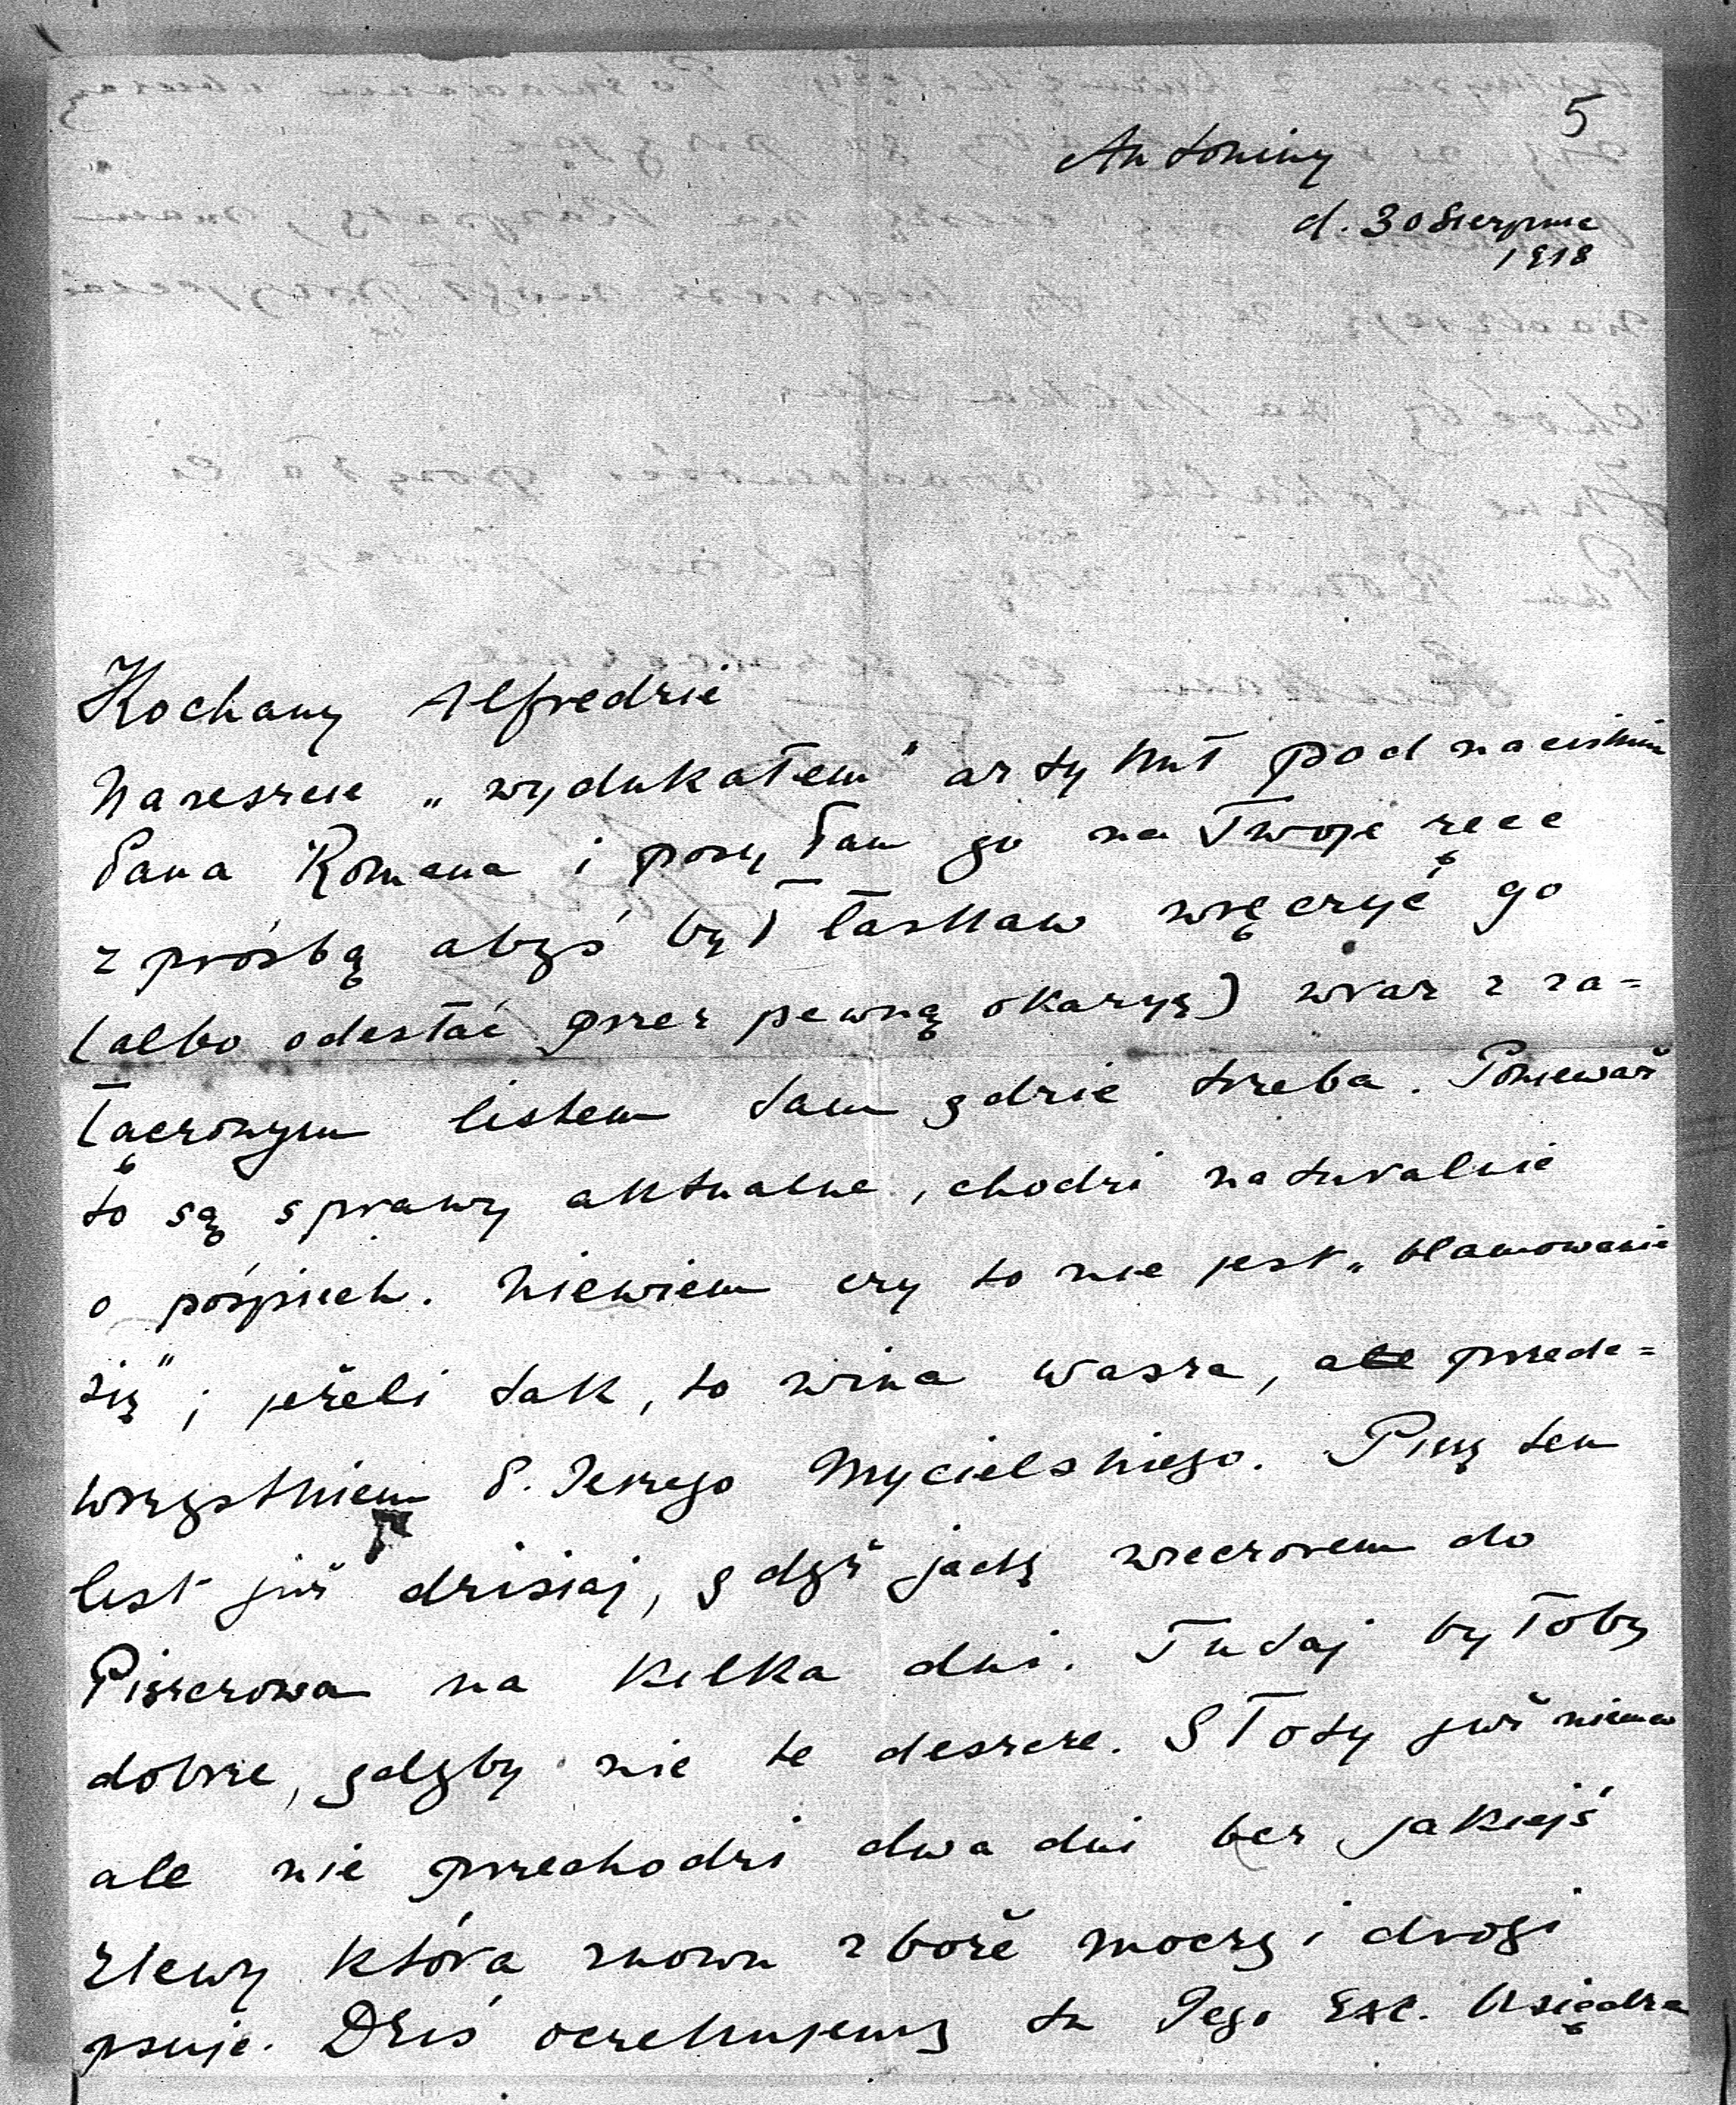 5
Antoniny
d. 30 Sierpnia
1918
Kochany Alfredzie
Nareszcie „wydukałem" artykuł pod naciskiem
Pana Romana i posyłam go na Twoje ręce
z prośbą abyś był łaskaw wręczyć go
(albo odesłać przez pewną okazyę) wraz z za=
łączonym listem tam gdzie trzeba. Ponieważ
to są sprawy aktualne, chodzi naturalnie
o pośpiech. Niewiem czy to nie jest „blamowanie
się"; jeżeli tak, to wina wasza, a przede=
wszystkiem P. Jerzego Mycielskiego. Piszę ten
list już dzisiaj, gdyż jadę wieczorem do
Piszczowa na kilka dni. Tutaj byłoby
dobrze, gdyby nie te deszcze. Słoty już niema
ale nie przechodzi dwa dni bez jakiejś
zlewy która znowu zboże moczy i drogi
psuje. Dziś oczekujemy tu Jego Exc. Księdza